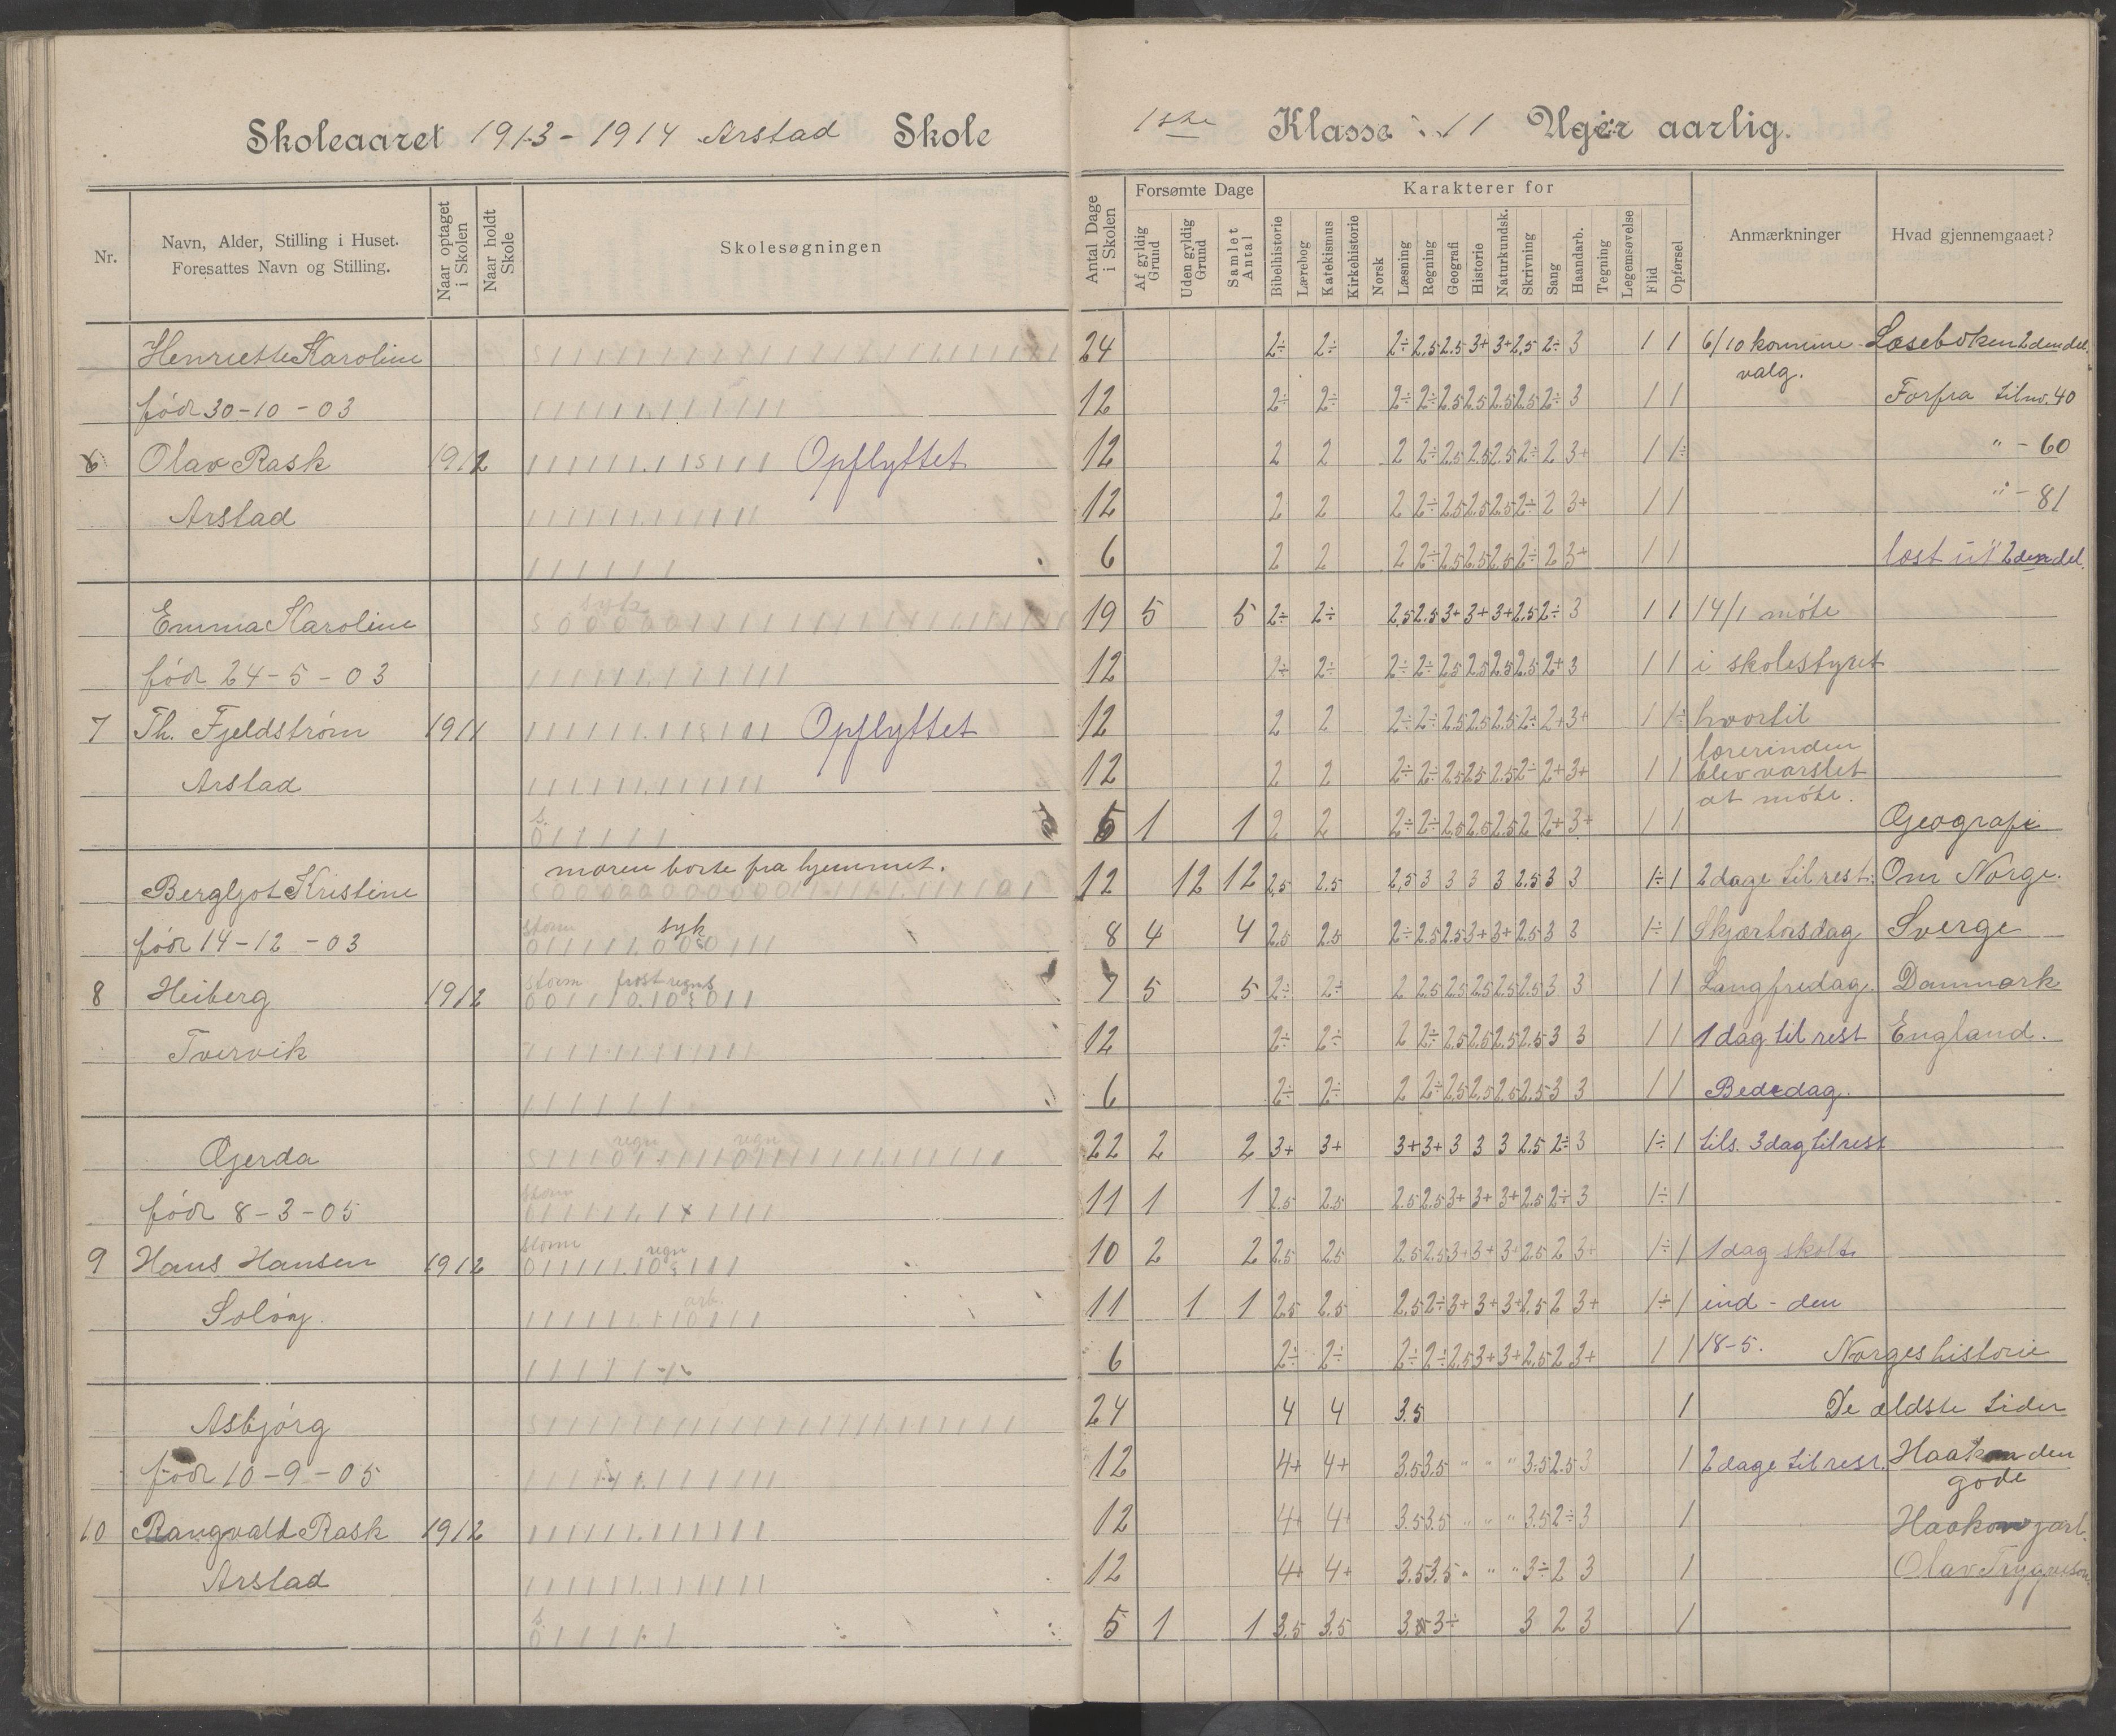 Skoleaaret 1913-1914 Arstad Skole
1ste Klasse 11 Uger aarlig.
Nr.
Navn, Alder, Stilling i Huset.
Foresattes Navn og Stilling.
Naar optaget i Skolen
Naar holdt Skole
Skolesøgningen
Antal Dage i Skolen
Forsømte Dage
Af gyldig Grund
Uden gyldig Grund
Samlet Antal
Karakterer for
Bibelhistorie
Lærebog
Katekismus
Kirkehistorie
Norsk
Læsning
Regning
Geografi
Historie
Naturkundsk.
Skrivning
Sang
Haandarb.
Tegning
Legemsøvelse
Flid
Opførsel
Anmærkninger
Hvad gjennemgaaet?
Henriette Karoline 24 2÷ 2÷ 2÷ 2.5 2.5 3+ 3+ 2.5 2÷ 3 1 1 6/10 komune- Læseboken 2den del.
valg.
født 30-10-03 12 2÷ 2÷ 2÷ 2÷ 2.5 2.5 2.5 2.5 2÷ 3 1 1 Forfra til nr. 40
6 Olav Rask 1912 Opflyttet 12 2 2 2 2÷ 2.5 2.5 2.5 2÷ 2 3+ 1 1÷ " - 60
Arstad 12 2 2 2 2÷ 2.5 2.5 2.5 2÷ 2 3+ 1 1 " - 81
6 2 2 2 2÷ 2.5 2.5 2.5 2÷ 2 3+ 1 1 læst ut 2den del.
syk
Emma Karoline 19 5 5 2÷ 2÷ 2.5 2.5 3+ 3+ 3+ 2.5 2÷ 3 1 1 14/1 møte
født 24-5-03 12 2÷ 2÷ 2÷ 2÷ 2.5 2.5 2.5 2.5 2+ 3 1 1 i skolestyret
7 Th. Fjeldstrøm 1911 Opflyttet 12 2 2 2÷ 2÷ 2.5 2.5 2.5 2÷ 2+ 3+ 1 1÷ hvortil
lærerinden
Arstad 12 2 2 2÷ 2÷ 2.5 2.5 2.5 2÷ 2+ 3+ 1 1 blev varslet
at møte.
s.
5 1 1 2 2 2÷ 2÷ 2.5 2.5 2.5 2 2+ 3+ 1 1 Geografi
moren borte fra hjemmet.
Bergljot Kristine 12 12 12 2.5 2.5 2.5 3 3 3 3 2.5 3 3 1÷ 1 2 dage til rest: Om Norge.
storm syk
født 14-12-03 8 4 4 2.5 2.5 2÷ 2.5 2.5 3+ 3+ 2.5 3 3 1÷ 1 Skjærtorsdag Sverge
storm frost regns
8 Heiberg 1912 7 5 5 2÷ 2÷ 2 2.5 2.5 2.5 2.5 2.5 3 3 1 1 Langfredag. Danmark
Tvervik 12 2÷ 2÷ 2 2÷ 2.5 2.5 2.5 2.5 3 3 1 1 1 dag til rest England.
6 2÷ 2÷ 2 2÷ 2.5 2.5 2.5 2.5 3 3 1 1 Bededag.
regn regn
Gjerda 22 2 2 3+ 3+ 3+ 3+ 3 3 3 2.5 2÷ 3 1÷ 1 tils. 3 dag til rest
storm
født 8-3-05 11 1 1 2.5 2.5 2.5 2.5 3+ 3+ 3+ 2.5 2÷ 3 1÷ 1
storm regn
9 Hans Hansen 1912 10 2 2 2.5 2.5 2.5 2.5 3+ 3+ 3+ 2.5 2 3+ 1÷ 1 1 dag skoltes
arb.
Soløy. 11 1 1 2.5 2.5 2.5 2÷ 3+ 3+ 3+ 2.5 2 3+ 1÷ 1 ind - den
6 2÷ 2÷ 2÷ 2÷ 2.5 3+ 3+ 2.5 2 3+ 1 1 18-5. Norges historie
Asbjørg 24 4 4 3.5 1 De ældste tider
født 10-9-05 12 4+ 4+ 3.5 3.5 " " " 3.5 2.5 3 1 2 dage til rest. Haakon den
gode
10 Rangvald Rask 1912 12 4+ 4+ 3.5 3.5 " " " 3.5 2÷ 3 1 Haakon jarl.
Arstad 12 4+ 4+ 3.5 3.5 " " " 3÷ 2 3 1 Olav Trygveson
s.
5 1 1 3.5 3.5 3.5 3÷ 3 2 3 1